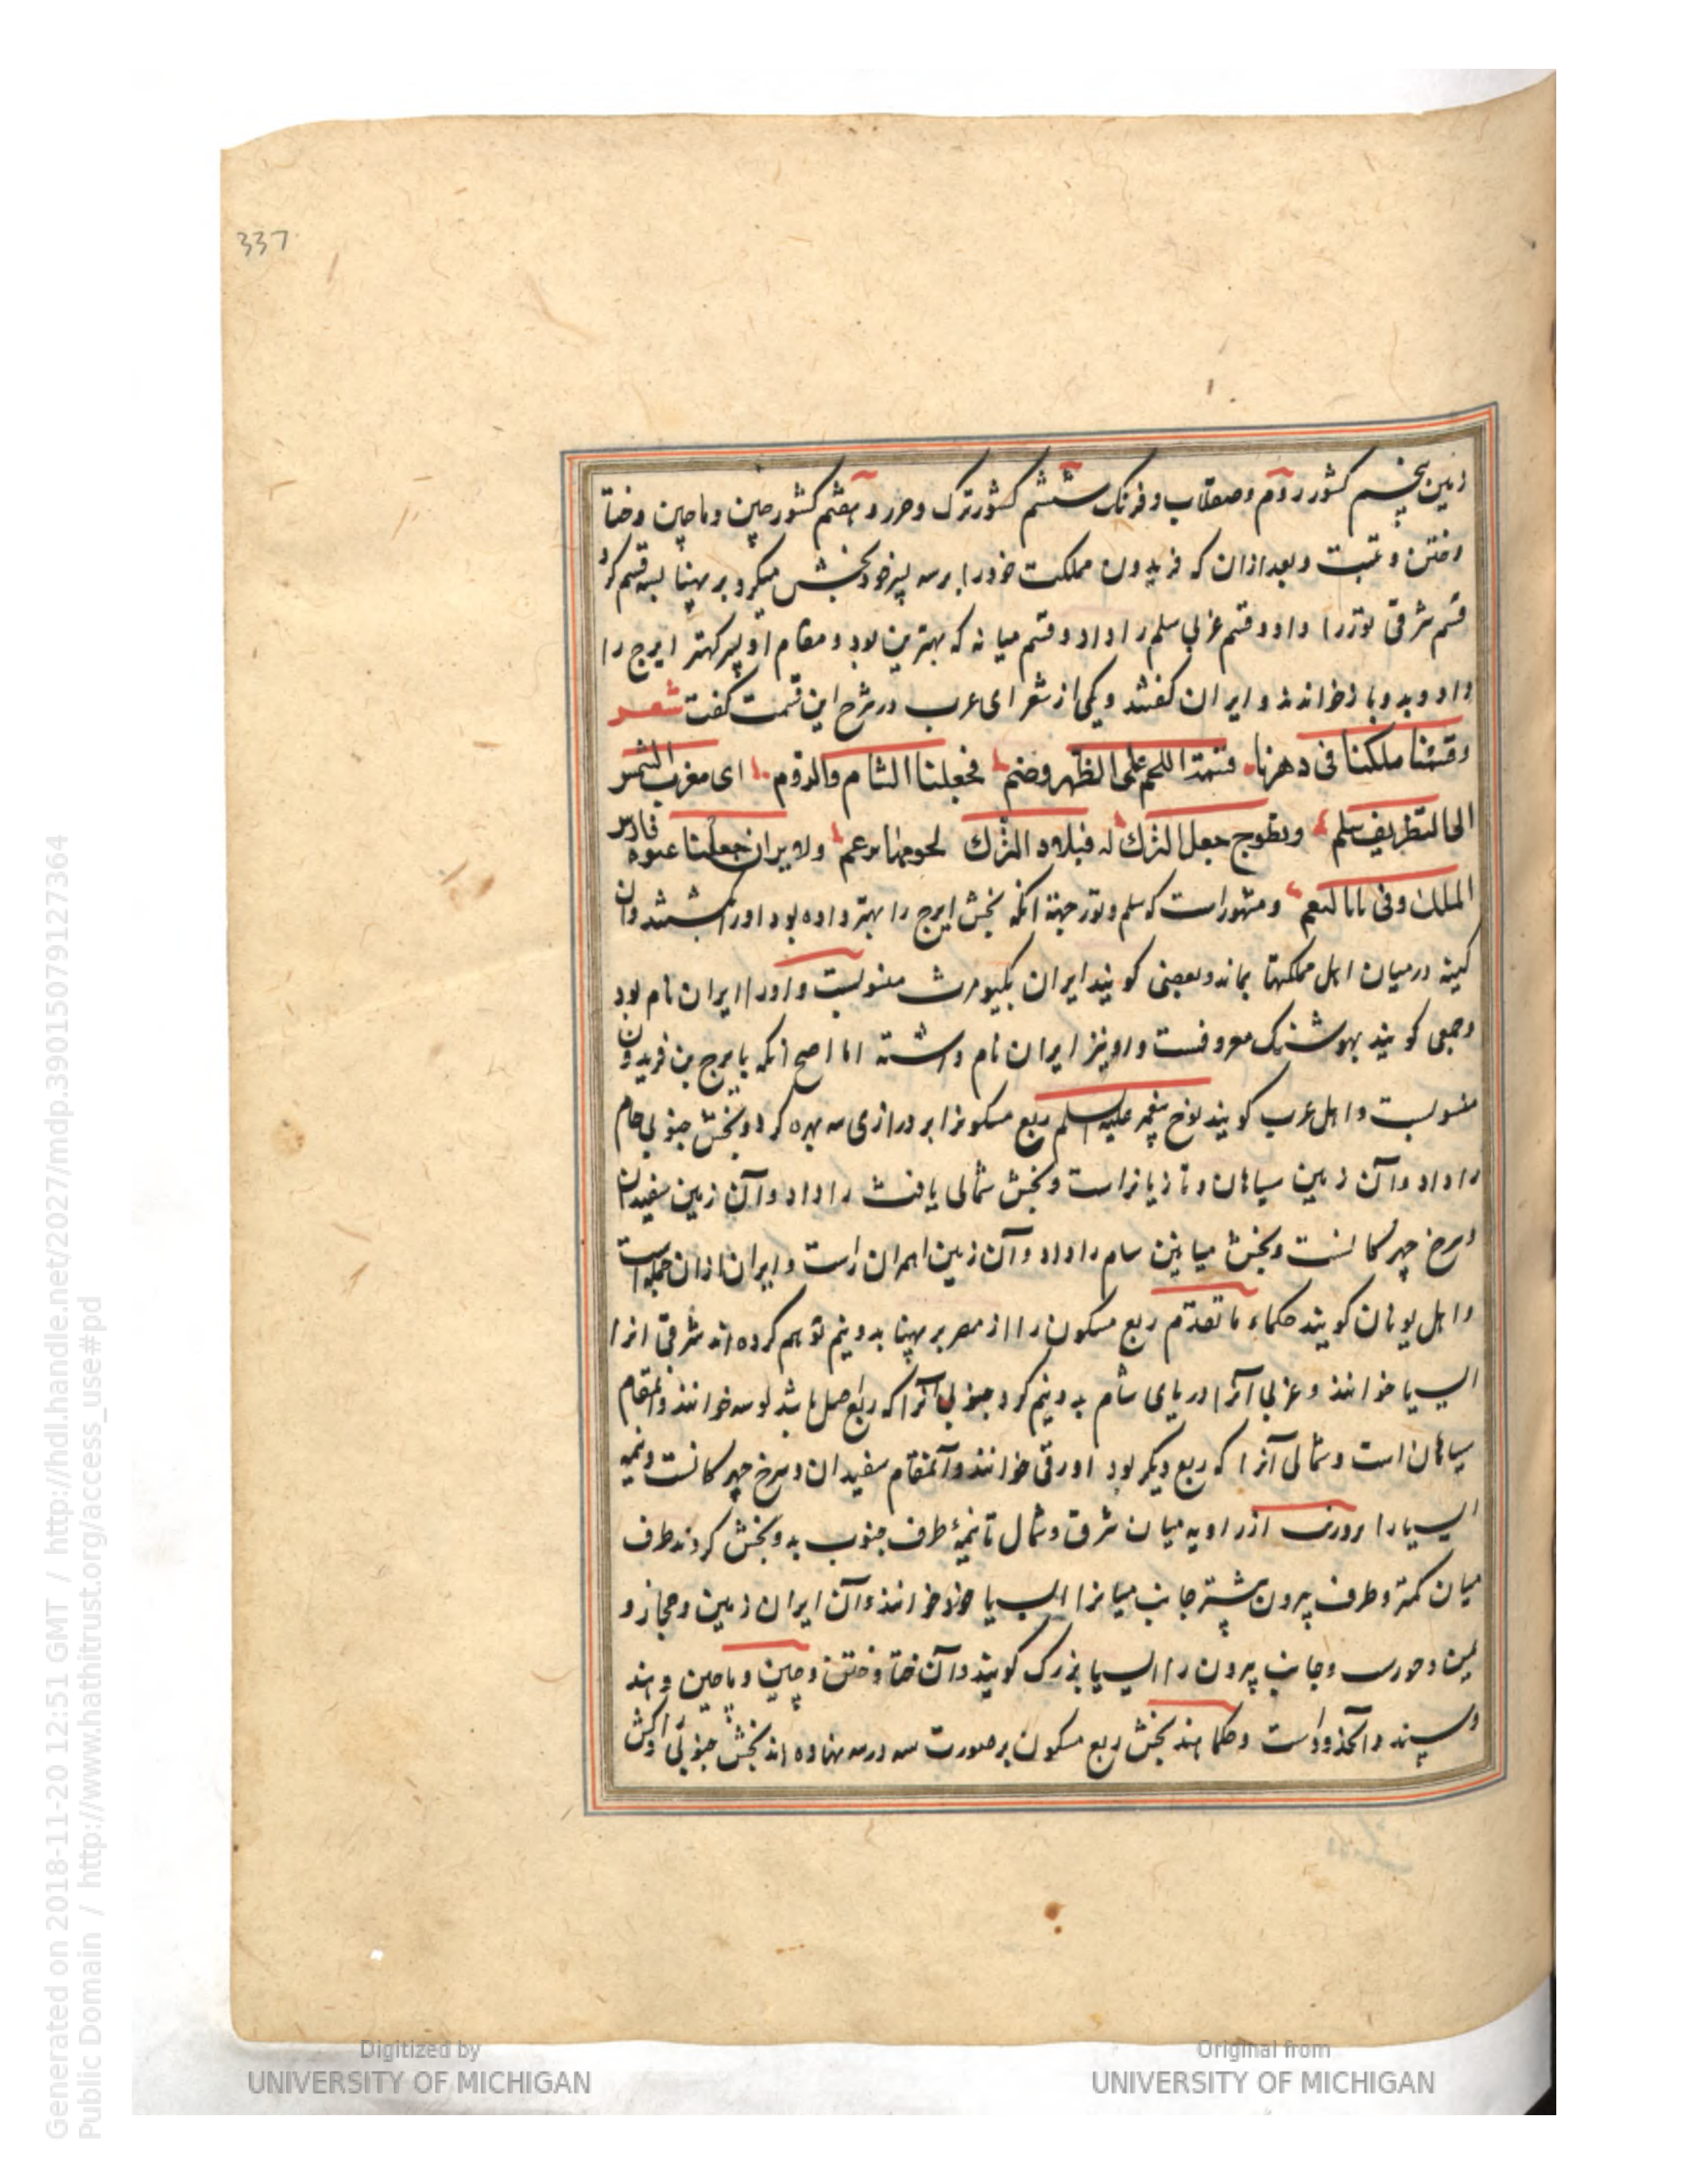 337
زمین پنجم کشور روم و صقلاب و فرنک ششم کشور ترک و خرر و هفتم کشور چین و ماچین و ختا
و ختن و تبت و بعد ازان که فریدون مملکت خود را بر سه پسر خود بخش میکرد بر پهنا بسه قسم کرد
قسم شرقی تور را داد و قسم غربی سلم را داد و قسم میانه که بهترین بود و مقام او پسر کهتر ایرج را
داد و بدو باز خواندند و ایران کفتند و یکی از شعرای عرب در شرح این قسمت کفت شعر
وقسمنا ملکنا فی دهرنا قسمة اللحم علی الظهر وضم فجعلنا الشام والروم الی مغرب الشمس
الی الغطریف سلم ولطوج جعل الترک له فبلاد الترک یحویها برغم ولایران جعلنا عنوة فارس
الملک وفی بابا لنعم و مشهور است که سلم و تور جهة انکه بخش ایرج را بهتر داده بود او را بکشتند و ان
کینه در میان اهل مملکتها بماند و بعضی کویند ایران بکیومرث منسوبست و او را ایران نام بود
و جمعی کویند بهوشنک معروفست و او نیز ایران نام داشته اما اصح انکه بایرج بن فریدون
منسوبست و اهل عرب کویند نوح پیغمبر علیه السلم ربع مسکونرا بر درازی سه بهره کرد و بخش جنوبی حام
را داد و آن زمین سیاهان و تازیانراست و بخش شمالی یافث را داد و آن زمین سفیدان
و سرخ چهرکانست و بخش میانین سام را داد و آن زمین اسمران راست و ایران ازان جمله است
و اهل یونان کویند حکماء ما تقدّم ربع مسکون را از مصر بر پهنا بدو نیم توهم کرده اند شرقی انرا
ایسیا خوانند و غربی آنرا دریای شام بدو نیم کرد جنوبی آنرا که ربع اصل باشد لوبیه خوانند و آنمقام
سیاهان است و شمالی آنرا که ربع دیکر بود اورقی خوانند و آنمقام سفیدان و سرخ چهرکانست و نیمه
ایسیا را از زاویه میان شرق و شمال تا نیمهٔ طرف جنوب بدو بخش کردند طرف
میان کمتر و طرف بیرون بیشتر جانب میانرا ایسیا خرد خوانند و آن ایران زمین و حجاز و
یمن و جانب بیرون را ایسیا بزرک کویند و آن ختا و ختن و چین و ماچین و هند
و سند و آنحدود است و حکما هند بخش ربع مسکون بر صورت سه در سه نهاده اند بخش جنوبی را
Generated on 2018-11-20 12:51 GMT / http://hdl.handle.net/2027/mdp.39015079127364
Public Domain / http://www.hathitrust.org/access_use#pd
Digitized by
UNIVERSITY OF MICHIGAN
Original from
UNIVERSITY OF MICHIGAN